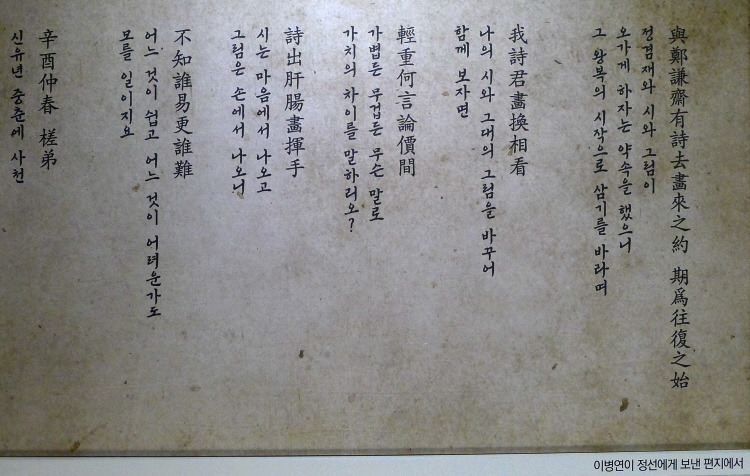 與鄭謙齋有詩去畫來之約 期爲往復之始
정겸재와 시와 그림이
오가게 하자는 약속을 했으니
그 왕복의 시작으로 삼기를 바라며
我詩君畫換相看
나의 시와 그대의 그림을 바꾸어
함께 보자면
輕重何言論價間
가볍든 무겁든 무슨 말로
가치의 차이를 말하리오?
詩出肝腸畫揮手
시는 마음에서 나오고
그림은 손에서 나오니
不知誰易更誰難
어느 것이 쉽고 어느 것이 어려운가도
모를 일이지요
辛酉仲春 槎弟
신유년 중춘에 사천
이병연이 정선에게 보낸 편지에서